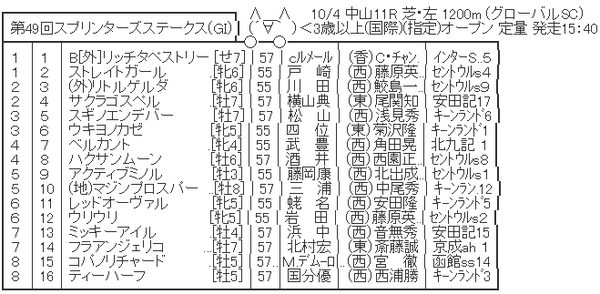 ∧ ∧ 10/4 中山11R 芝・左 1200m (グローバルSC)
第49回スプリンターズステークス(GI) (´▽`) <3歳以上(国際)(指定)オープン 定量 発走15:40
1 1 B[外]リッチタペストリー [せ7] 57 cルメール (香)C・チャン. インターS..5
1 2 ストレイトガール .[牝6] 55 戸 崎 (西)藤原英... セントウルs4
2 3 (外)リトルゲルダ .[牝6] 55 川 田 (西)鮫島一... セントウルs9
2 4 サクラゴスペル ..[牡7] 57 横山典 (東)尾関知 安田記17
3 5 スギノエンデバー ..[牡7] 57 松 山 (西)浅見秀 キーンランド6
3 6 ウキヨノカゼ .[牝5] 55 四 位 (東)菊沢隆 キーンランド1
4 7 ベルカント .[牝4] 55 武 豊 (西)角田晃 北九記 1
4 8 ハクサンムーン ..[牡6] 57 酒 井 (西)西園正... セントウルs8
5 9 アクティブミノル ..[牡3] 55 藤岡康 (西)北出成... セントウルs1
5 10 (地)マジンプロスパー ..[牡8] 57 三 浦 (西)中尾秀 キーンラン.12
6 11 レッドオーヴァル .[牝5] 55 蛯 名 (西)安田隆 キーンランド5
6 12 ウリウリ .[牝5] 55 岩 田 (西)藤原英... セントウルs2
7 13 ミッキーアイル ..[牡4] 57 浜 中 (西)音無秀 安田記15
7 14 フラアンジェリコ ..[牡7] 57 北村宏 (東)斎藤誠 京成ah 1
8 15 コパノリチャード ..[牡5] 57 M.デムーロ (西)宮 徹 函館ss14
8 16 ティーハーフ ..[牡5] 57 国分優 (西)西浦勝 キーンランド3